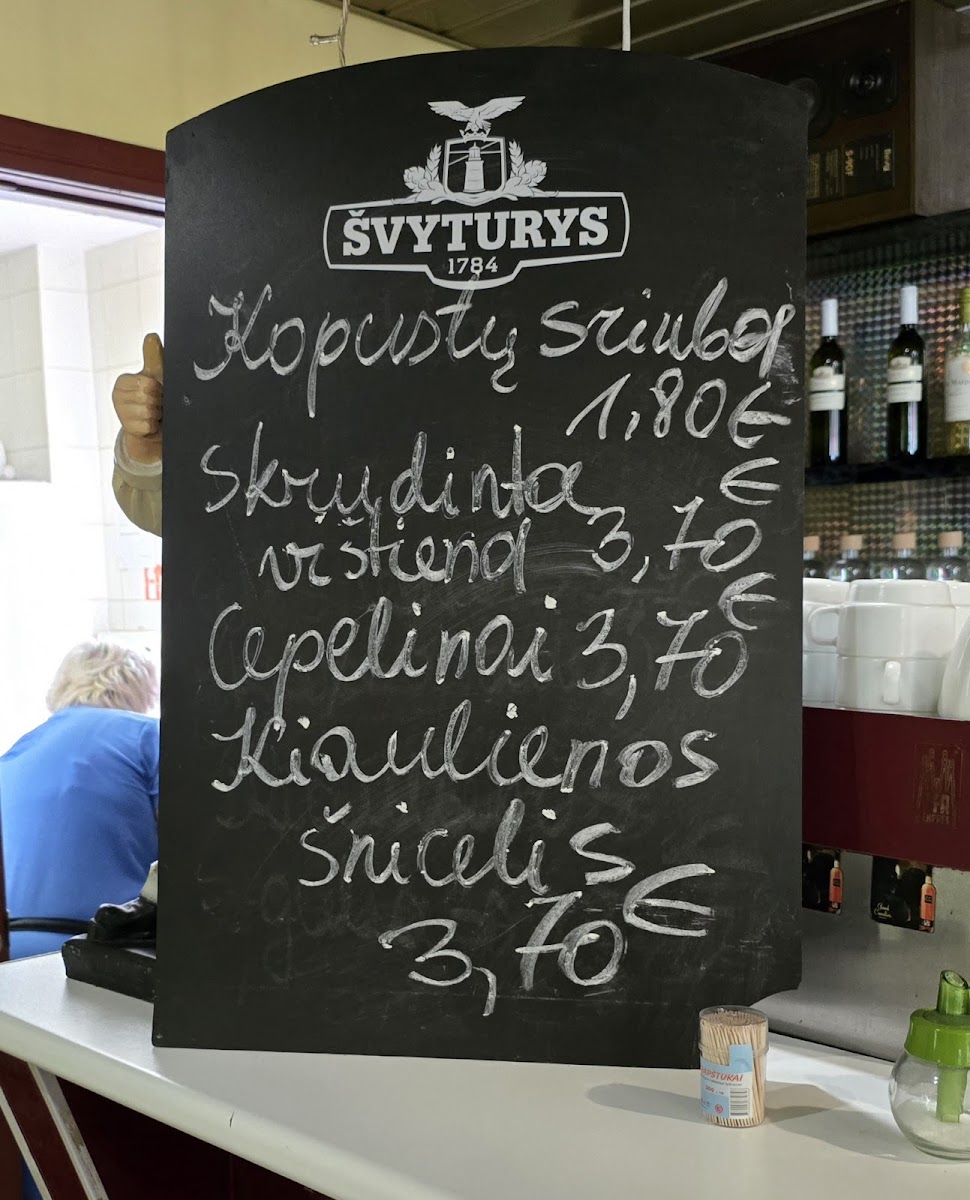 ŠVYTURYS
1784
Kopustų sriuba
1,80 €
Skrudinta €
vištiena 3,70
€
Cepelinai 3,70
Kiaulienos
šnicelis
3,70 €